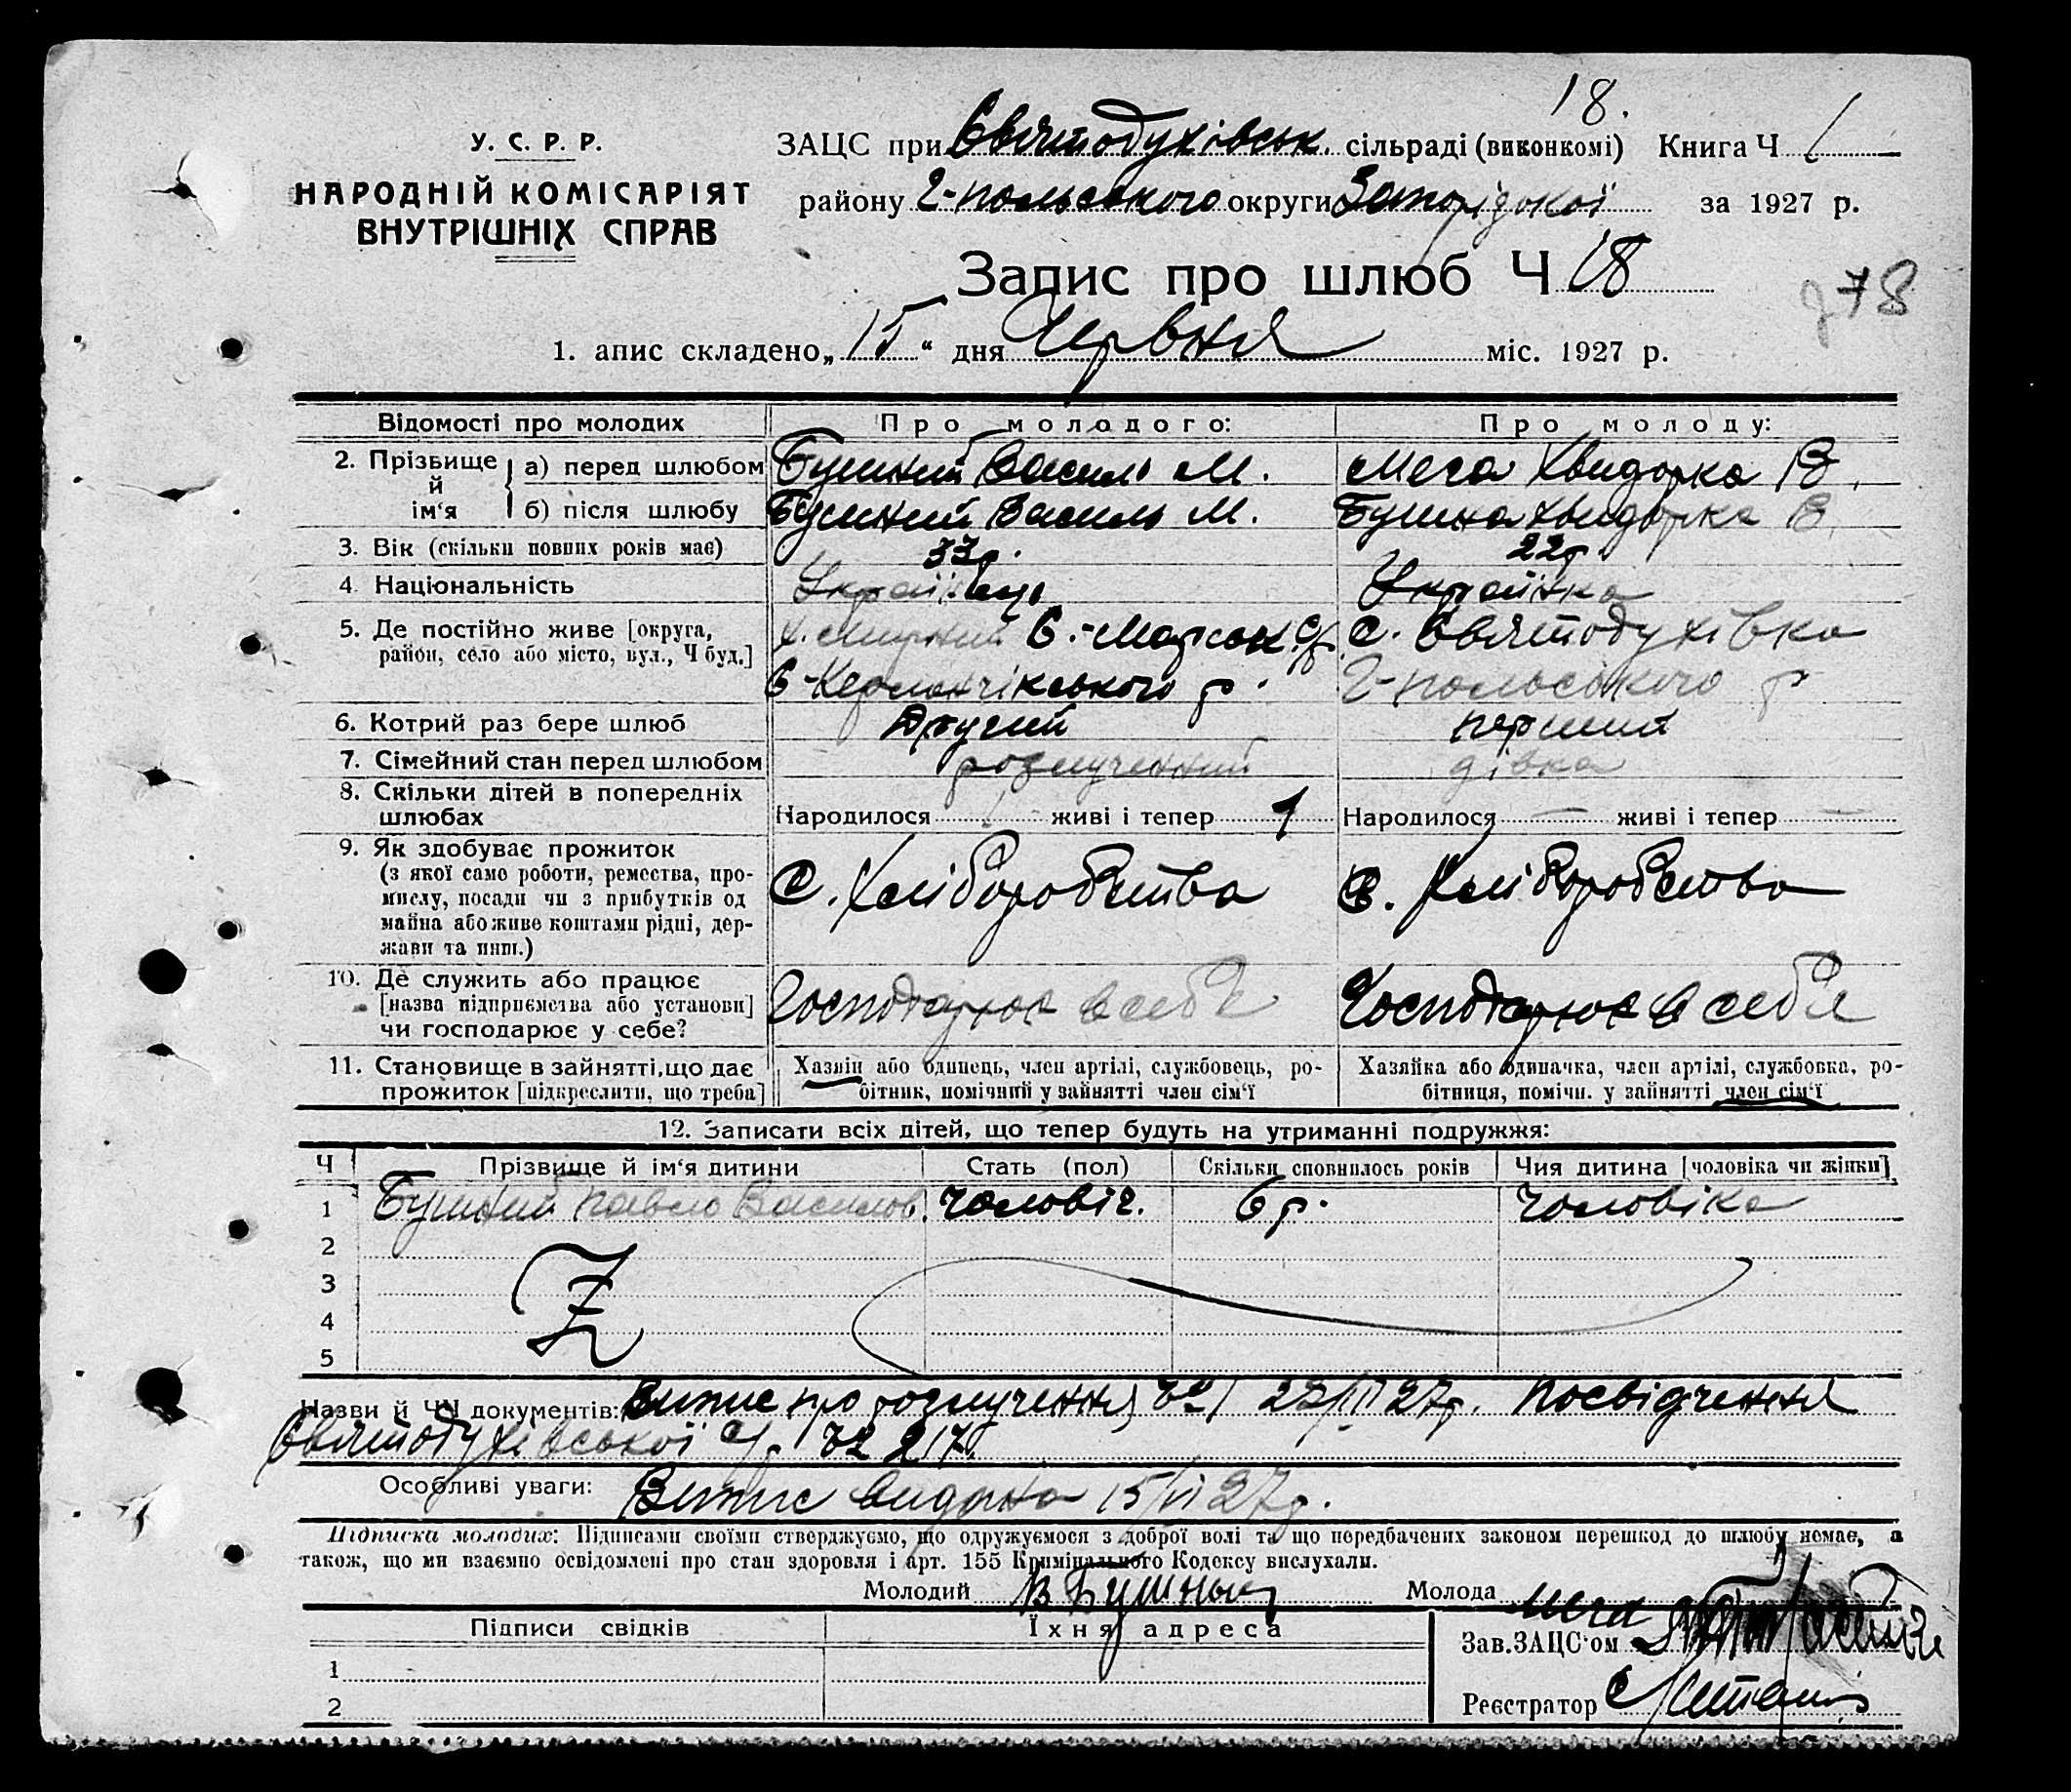 18.
У. С. Р. Р.
НАРОДНІЙ КОМІСАРІЯТ
ВНУТРІШНІХ СПРАВ
ЗАЦС при Святодухівськ. сільраді (виконкомі) Книга Ч 1
району Г-польського округи Запорізької за 1927 р.
Запис про шлюб Ч 18
278
1. апис складено „15“ дня Червня міс. 1927 р.
Відомості про молодих Про молодого: Про молоду:
2. Прізвище й ім‘я а) перед шлюбом Бушний Василь М. Мега Хвидорка В.
б) після шлюбу Бушний Василь М. Бушна Хвидорка В.
3. Вік (скільки повних років має) 33р. 22р.
4. Національність Українець Українка
5. Де постійно живе [округа, район, село або місто, вул., Ч буд.] х. Мирний С.-Маріон. с/р. с. Святодухівка
С-Керменчікського р. Г-польського р
6. Котрий раз бере шлюб Другий перший
7. Сімейний стан перед шлюбом розлученний дівка
8. Скільки дітей в попередніх шлюбах Народилося живі і тепер 1 Народилося — живі і тепер —
9. Як здобуває прожиток
(з якої само роботи, ремества, промислу, посади чи з прибутків од майна або живе коштами рідні, держави та инш.) С. Хліборобства С. Хліборобства
10. Де служить або працює
[назва підприємства або установи]
чи господарює у себе? Господарює в себе Господарює в себе
11. Становище в зайнятті, що дає прожиток [підкреслити, що треба] Хазяїн або одинець, член артілі, службовець, робітник, помічний у зайнятті член сім‘ї Хазяйка або одиначка, член артілі, службовка, робітниця, помічн. у зайнятті член сім‘ї
12. Записати всіх дітей, що тепер будуть на утриманні подружжя:
Ч Прізвище й ім‘я дитини Стать (пол) Скільки сповнилось років Чия дитина [чоловіка чи жінки]
1 Бушний Павло Васильов. чоловіч. 6 р. чоловіка
2
3
4
5
Назви й ЧЧ документів: Витис про розлучення Ч21 27р. Посвідчення
Святодухівської с/р. Ч2 217.
Особливі уваги: Витис видана 15/VI 27р.
Підписка молодих: Підписами своїми стверджуємо, що одружуємося з доброї волі та що передбачених законом перешкод до шлюбу немає, а
також, що ми взаємно освідомлені про стан здоровля і арт. 155 Кримінального Кодексу вислухали.
Молодий В Бушный Молода Мега
Підписи свідків Їхня адреса Зав.ЗАЦС‘ом
1
2 Реєстратор